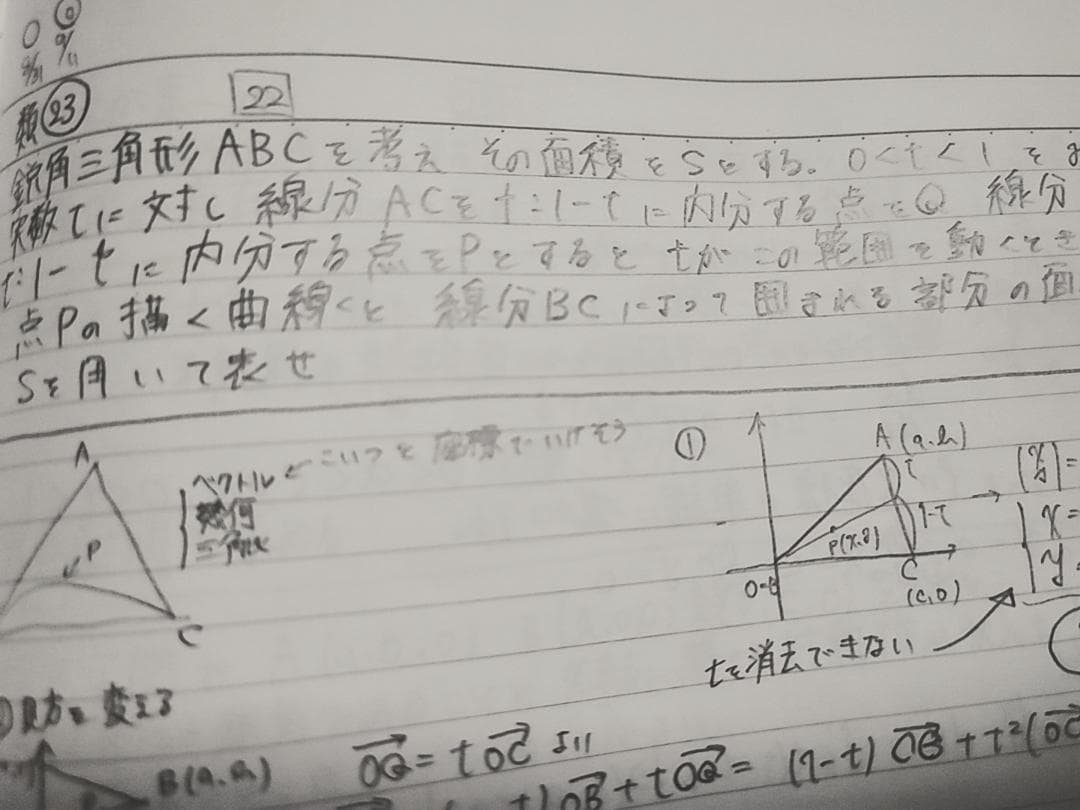 類 23 22
鋭角三角形ABCを考え その面積をSとする。0<t<1を
実数tに対し 線分ACをt:1-tに内分する点をQ 線分
t:1-tに内分する点をPとすると tがこの範囲を動くとき
点Pの描く曲線くと 線分BCによって囲まれる部分の面
Sを用いて表せ
A
ベクトル ← こいつと座標でいけそう
幾何
P
C
① A(a,b)
t
1-t
P(x,y)
C
(c,0)
x=
y
tを消去できない
見方を変える
OQ = tOC より
B(a,b)
t)OB + tOQ = (1-t)OB + t²(OC